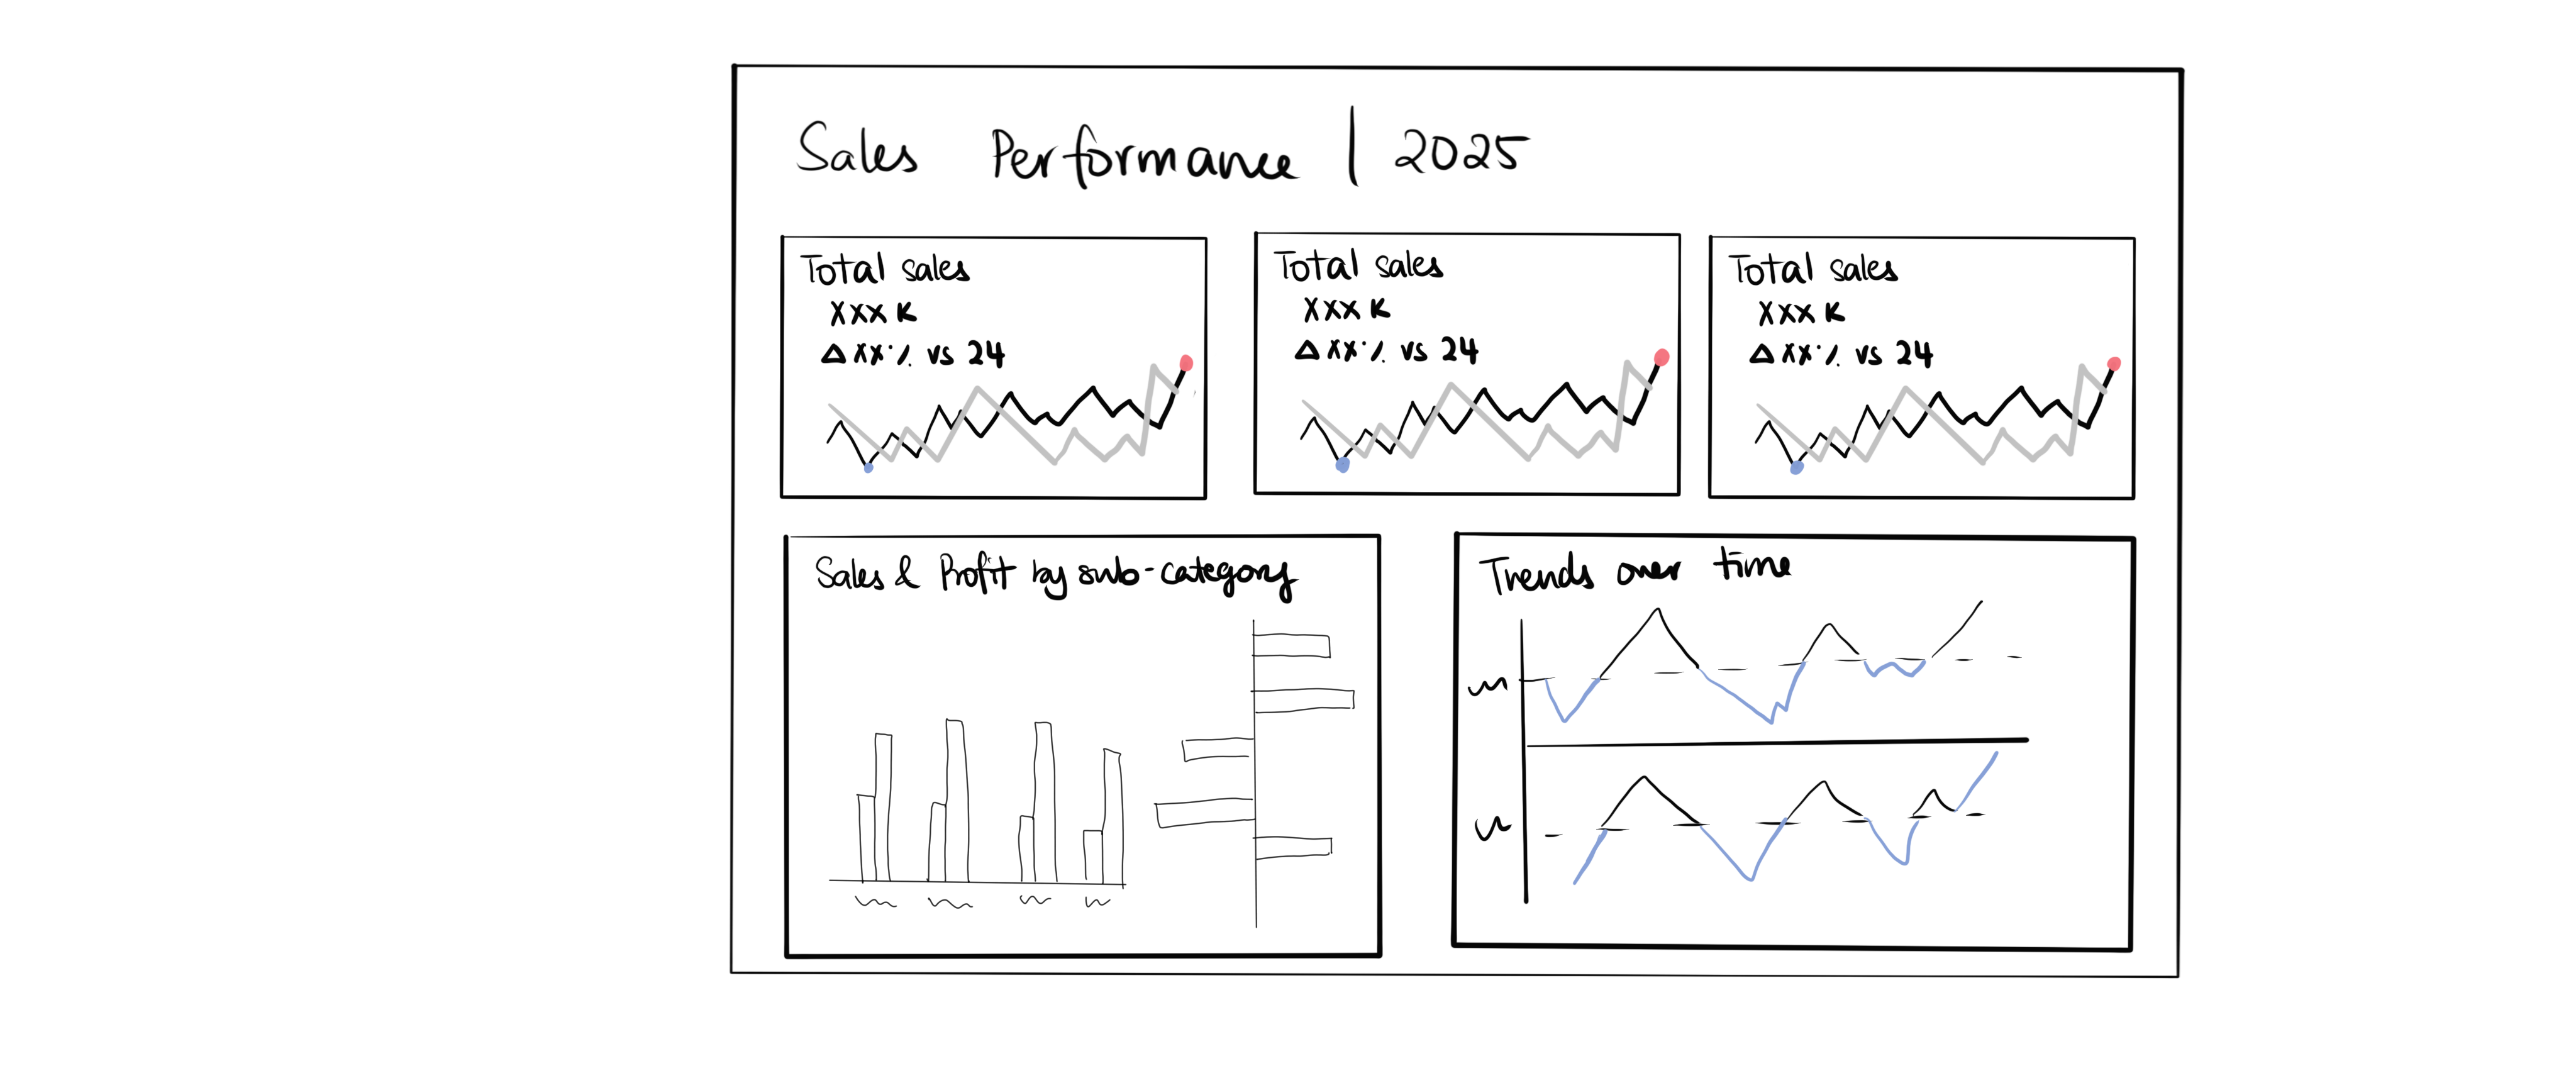 Sales Performance | 2025
Total sales
XXX K
△ XX% vs 24
Total sales
XXX K
△ XX% vs 24
Total sales
XXX K
△ XX% vs 24
Sales & Profit by sub-category
Trends over time